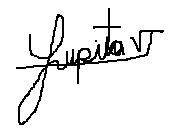 Lupita V